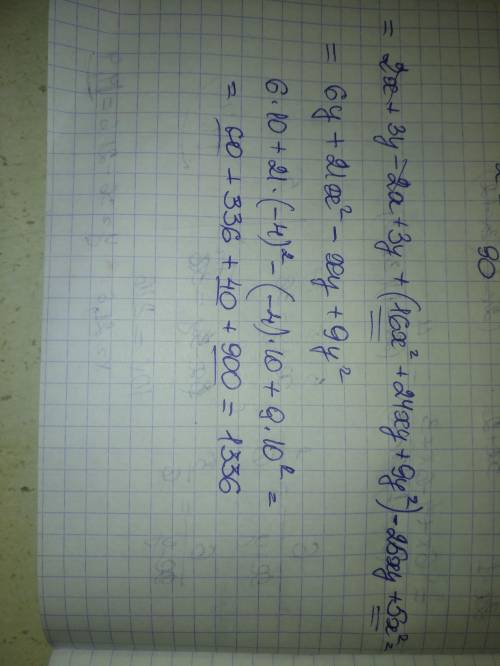 90
= 2x + 3y - 2x + 3y + (16x² + 24xy + 9y²) - 25xy + 5x² =
= 6y + 21x² - xy + 9y²
6·10 + 21·(-4)² - (-4)·10 + 9·10² =
= 60 + 336 + 40 + 900 = 1336